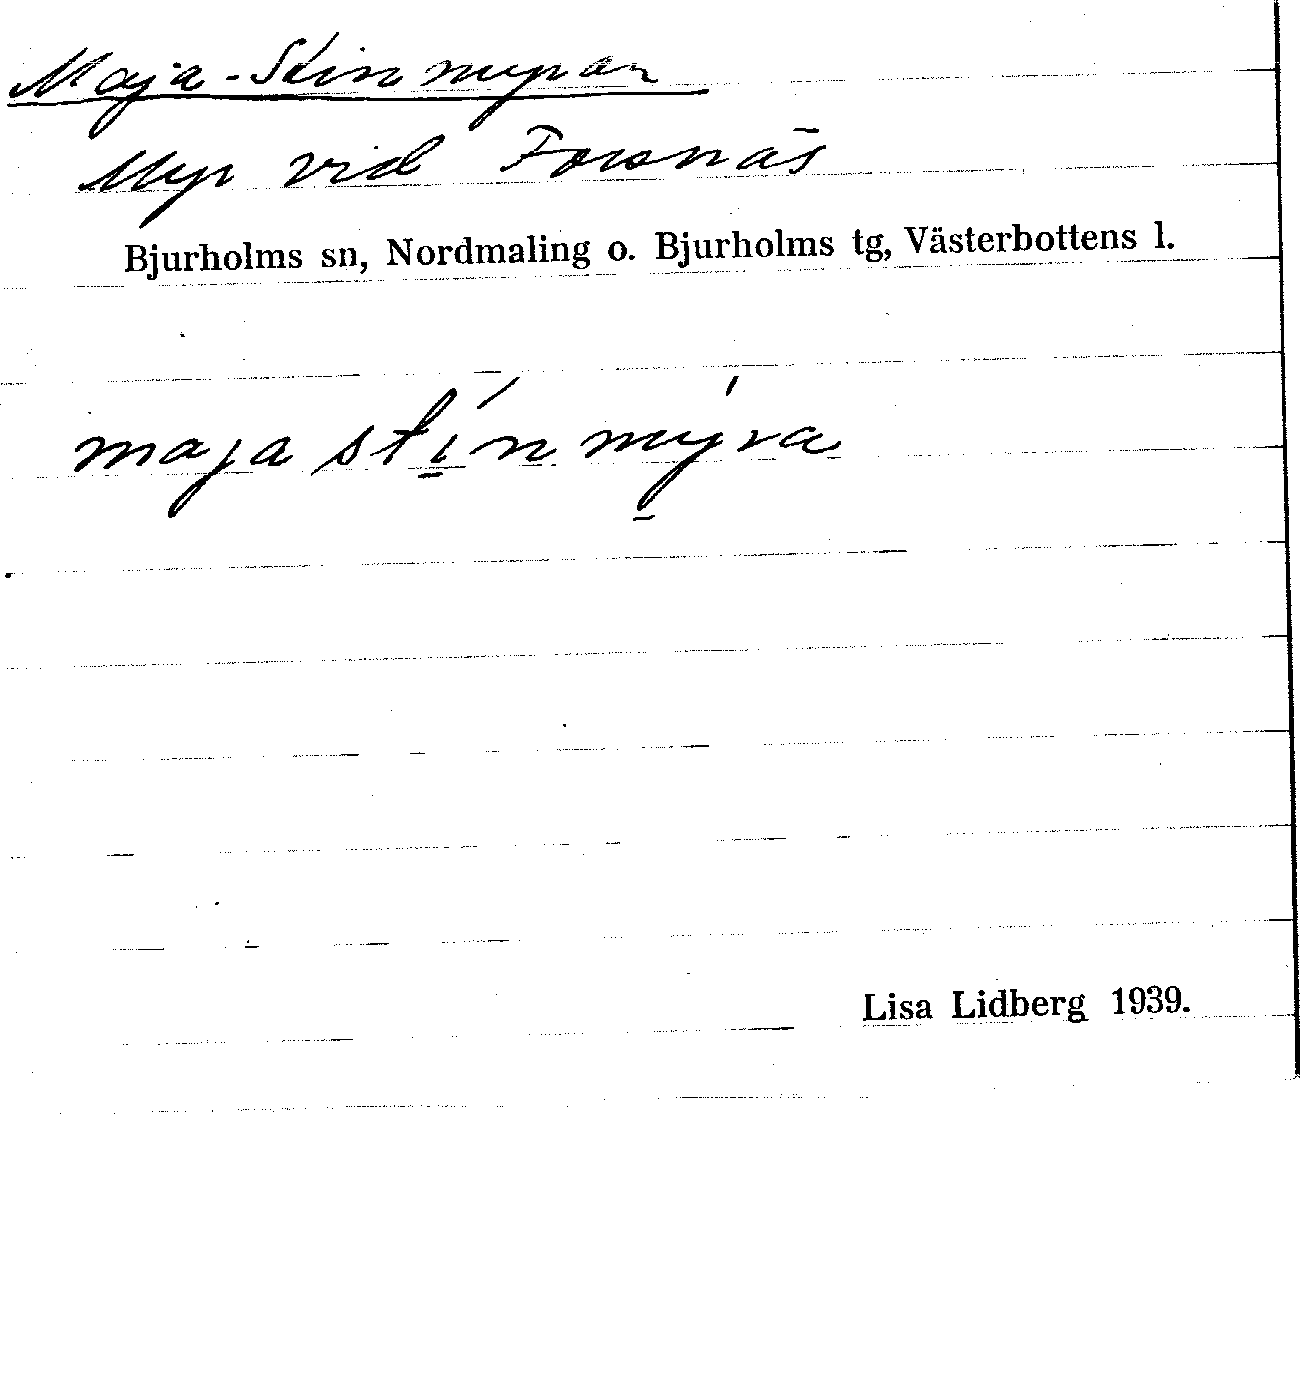 Maja-Stinmyran
Myr vid Forsnäs
Bjurholms sn, Nordmaling o. Bjurholms tg, Västerbottens l.
maja stı̱́n mý̱ra
Lisa Lidberg 1939.